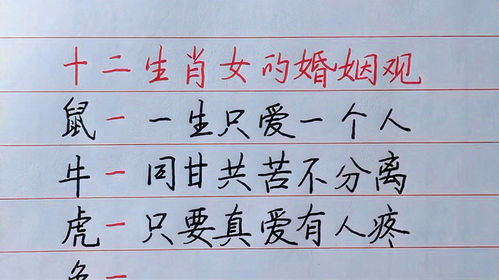 十二生肖女的婚姻观
鼠一一生只爱一个人
牛一同甘共苦不分离
虎一只要真爱有人疼